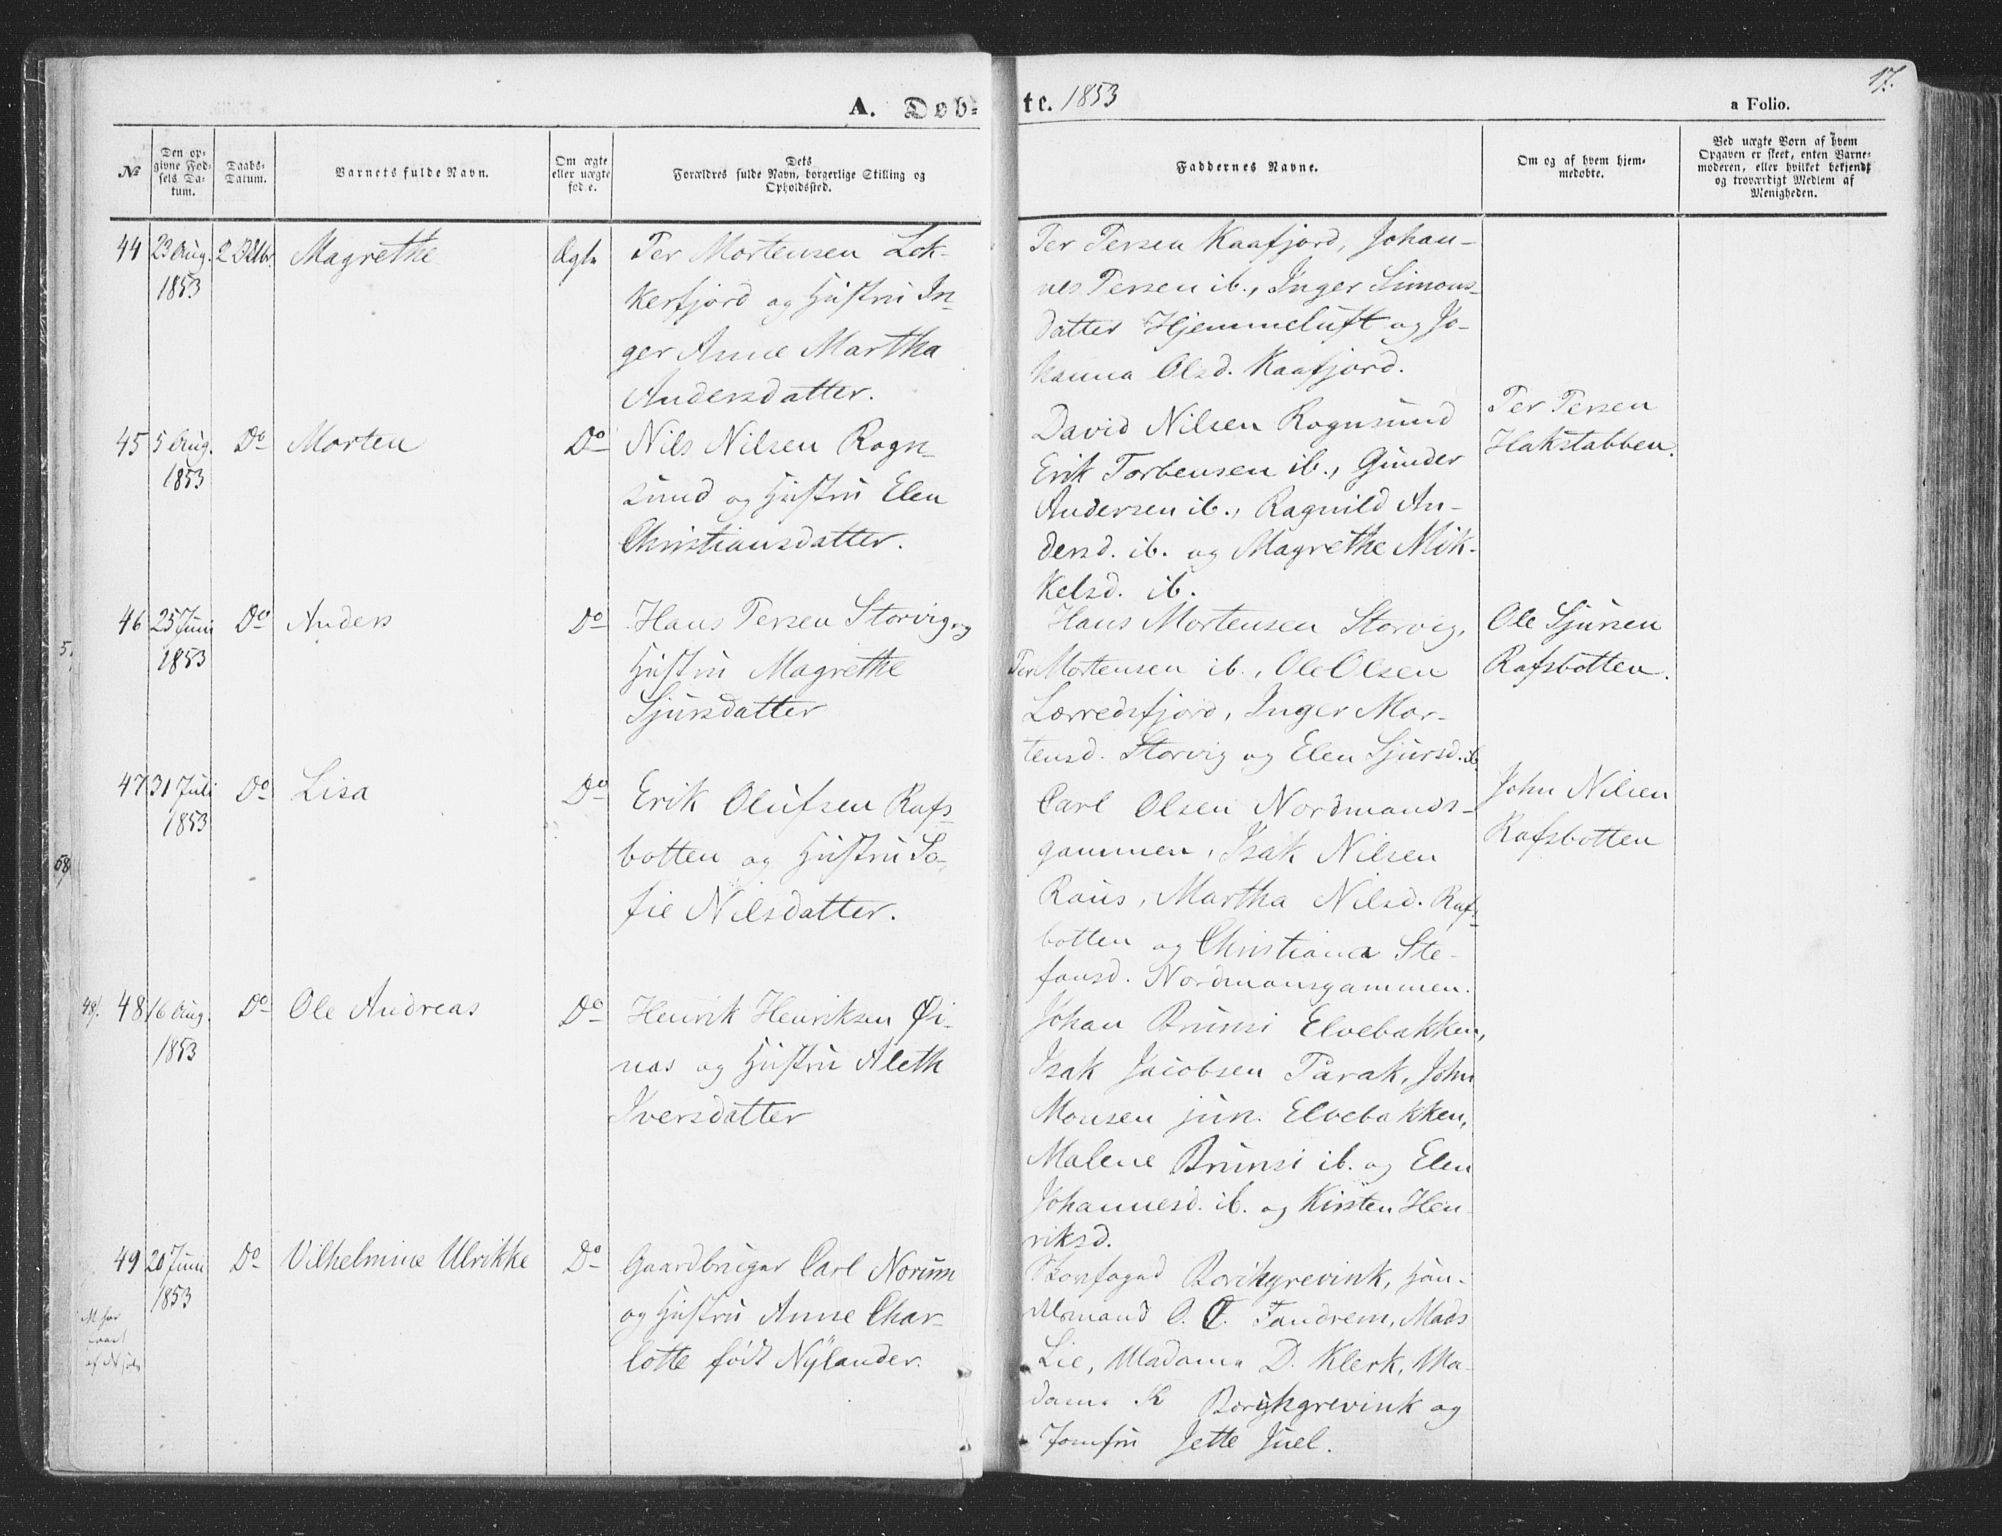 17.
A. Døb-
te. 1853
a Folio.
№
Den op-
givne Fød-
sels Da-
tum.
Daabs-
Datum.
Barnets fulde Navn.
Om ægte
eller uægte
født.
Dets
Forældres fulde Navn, borgerlige Stilling og
Opholdssted.
Faddernes Navne.
Om og af hvem hjem-
medøbt.
Ved uægte Børn af hvem
Opgaven er skeet, enten Barne-
moderen, eller hvilket bekjendt
og troværdigt Medlem af
Menigheden.
44
23 Aug.
1853
Magrethe
Ægte
Per Mortensen Lek-
kerfjord og Hustru In-
ger Anne Martha
Andersdatter.
Per Persen Kaafjord, Johan-
nes Persen ib., Inger Simons-
datter Hjemmeluft og Jo-
hanna Olsd. Kaafjord.
45
5 Aug.
1853
Do
Morten
Do
Nils Nilsen Rogn-
sund og Hustru Elen
Christiansdatter.
David Nilsen Rognsund
Erik Torbensen ib., Gunder
Andersen ib., Ragnild An-
dersd. ib. og Magrethe Mik-
kelsd. ib.
Per Persen
Hakstabben.
46
25 Juni
1853
Do
Anders
Do
Hans Persen Storvig og
Hustru Magrethe
Sjursdatter
Hans Mortensen Storvig,
Per Mortensen ib., Ole Olsen
Lærredsfjord, Inger Mor-
tensd. Storvig og Elen Sjursd. ib.
Ole Sjursen
Rafsbotten.
47
31 Juli
1853
Do
Lisa
Do
Erik Olufsen Rafs-
botten og Hustru So-
fie Nilsdatter.
Carl Olsen Nordmands-
gammen, Isak Nilsen
Raus, Martha Nilsd. Rafs-
botten og Christiana Ste-
fansd. Nordmansgammen.
John Nilsen
Rafsbotten
48
16 Aug.
1853
Do
Ole Andreas
Do
Henrik Henriksen Øi-
nas og Hustru Aleth
Iversdatter
Johan Brunsi Elvebakken,
Isak Jacobsen Parak, John
Monsen jun. Elvebakken,
Malene Brunsi ib. og Elen
Johannesd. ib. og Kirsten Hen-
riksd.
49
20 Juni
1853
Do
Vilhelmine Ulrikke
Do
Gaardbruger Carl Norum
og Hustru Anne Char-
lotte født Nylander.
Borchgrevink, Han-
delsmand O. C. Fandrem, Mads
Lie, Madame D. Klerk, Ma-
dame K Borchgrevink og
Jomfru Jette Juel.